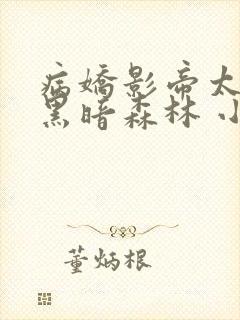 病娇影帝太
黑暗森林 小
董炳根